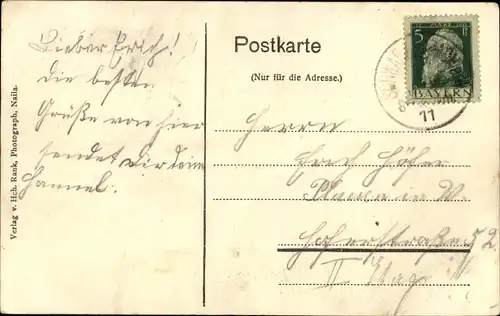 Lieber Erich!
Die besten
Grüße von hier
sendet Dir Dein
Hannel.
Postkarte
(Nur für die Adresse.)
Herrn
Erich Höfer
Plauen in V.
straße 52
II Etag
5
BAYERN
11
Verlag v. Hch. Rank, Photograph, Naila.